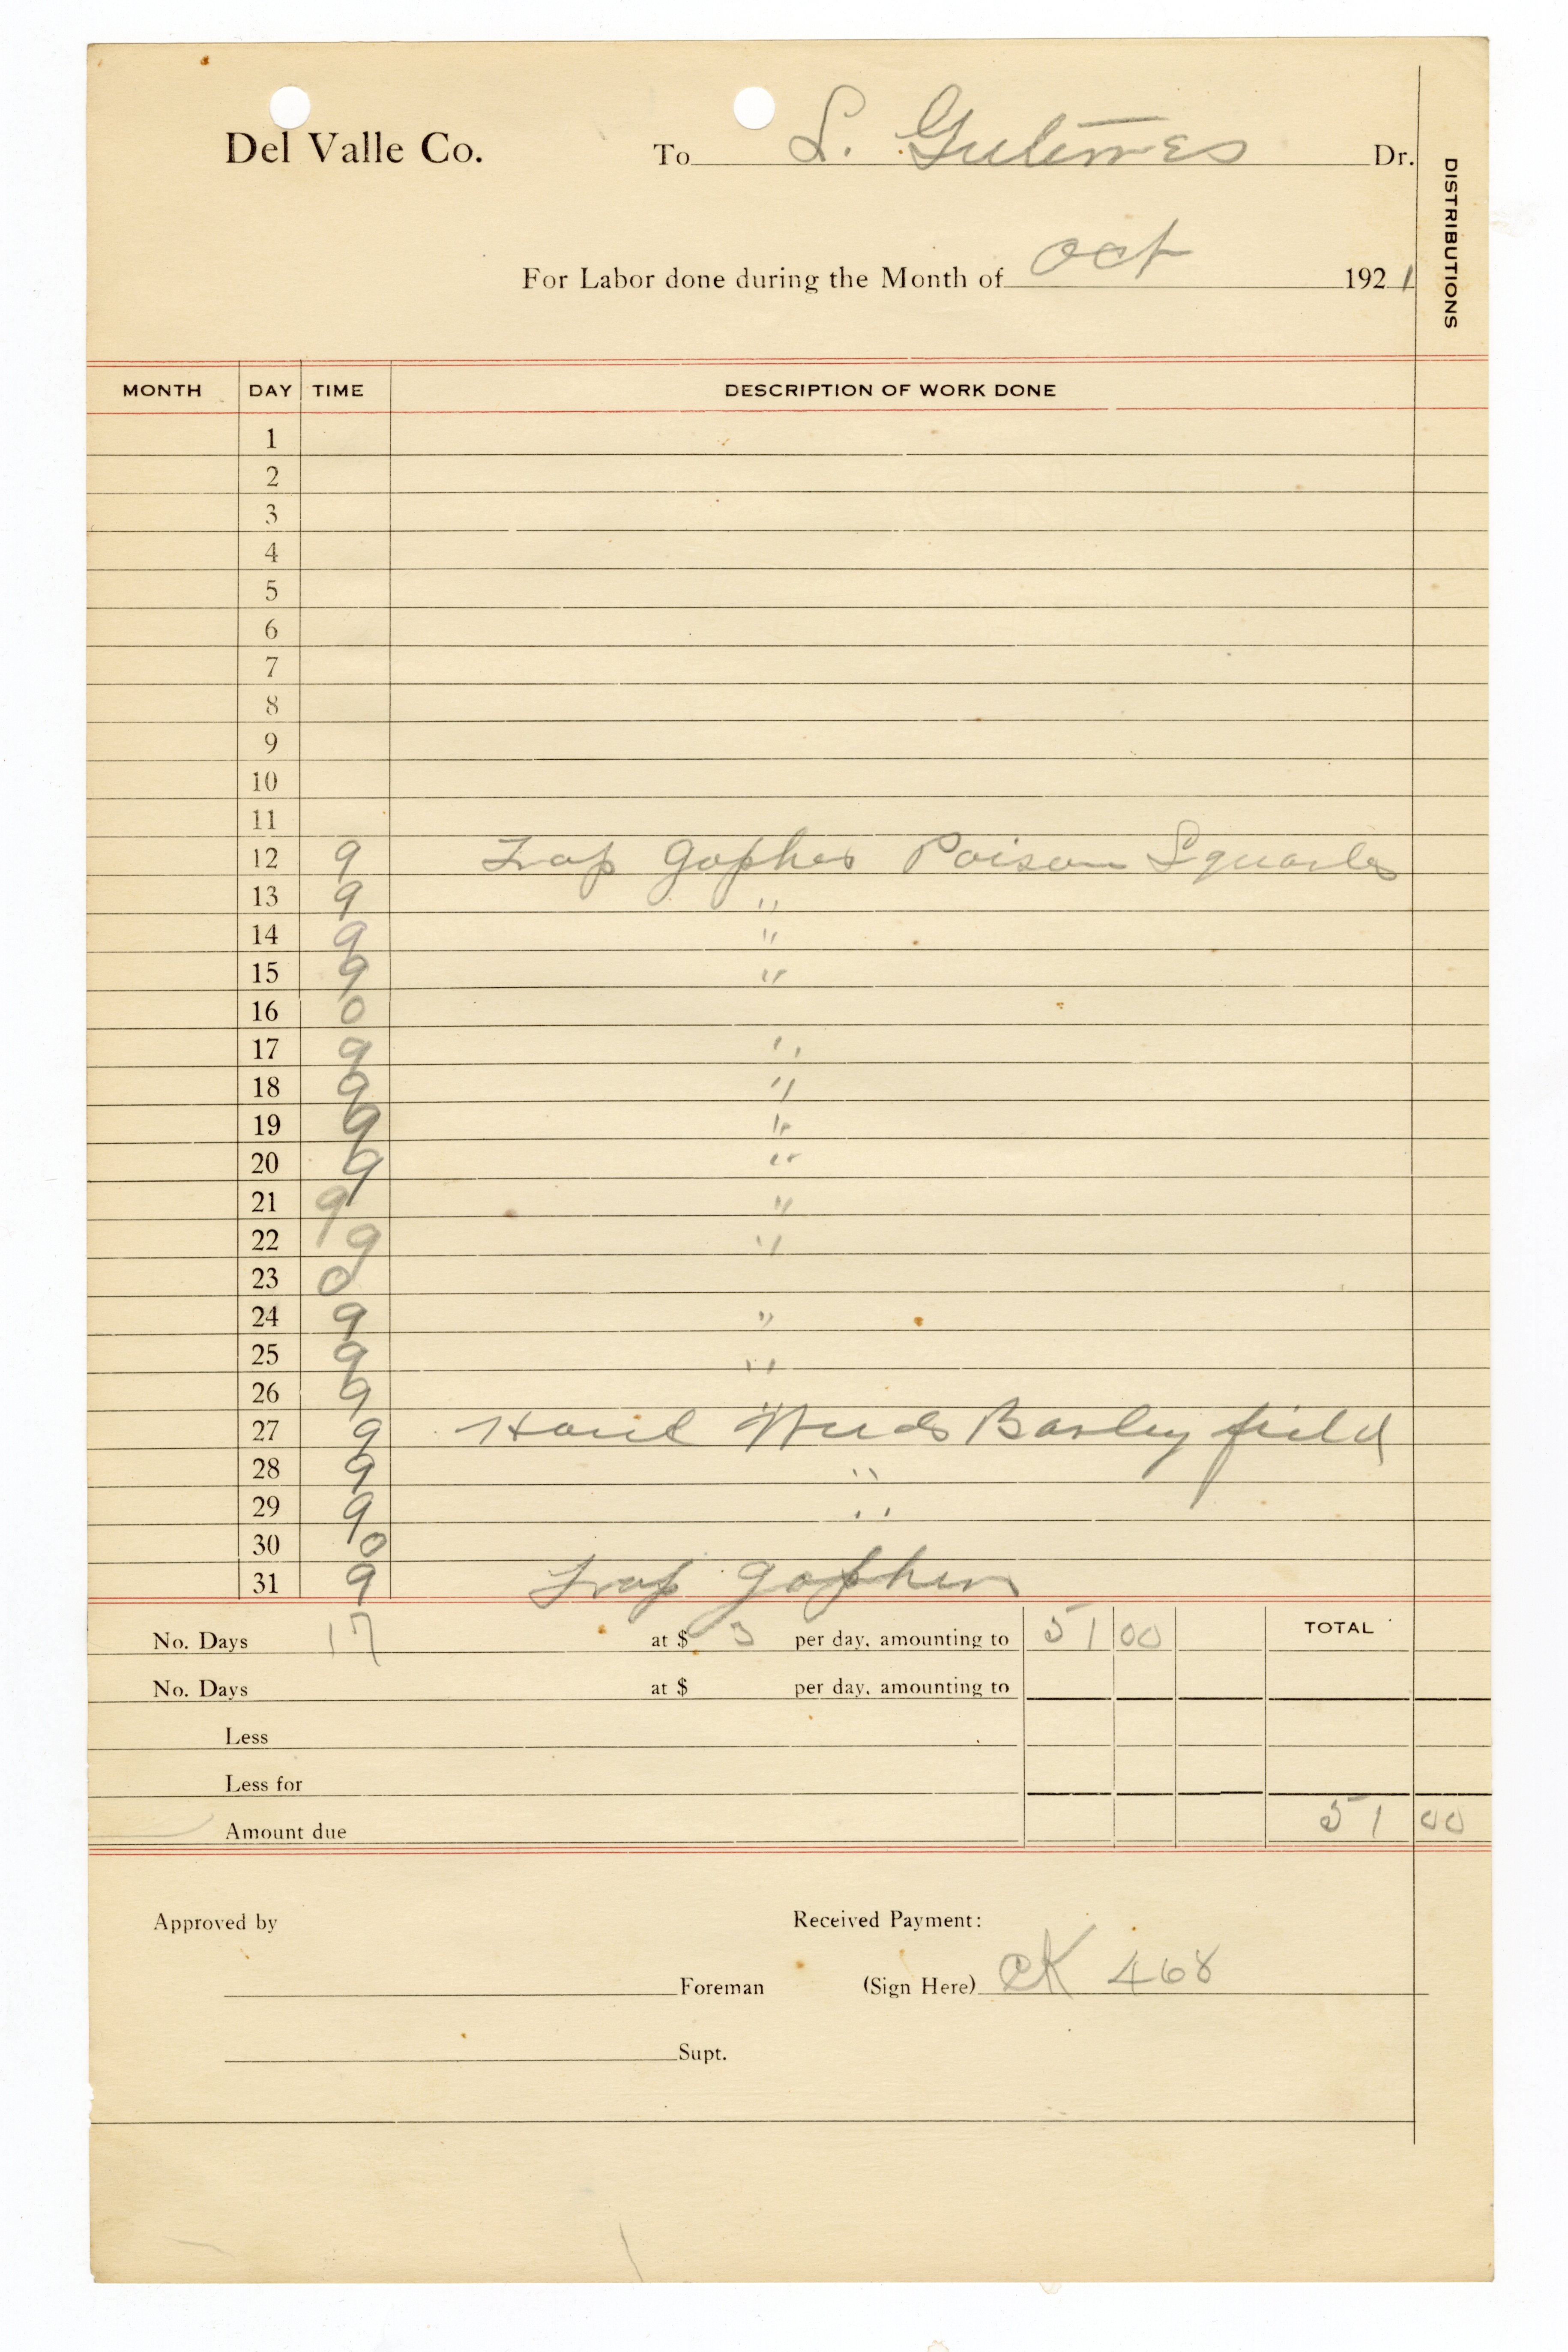 Del Valle Co. To L. Gutierres Dr.
DISTRIBUTIONS
For Labor done during the Month of Oct 1921
MONTH DAY TIME DESCRIPTION OF WORK DONE
1
2
3
4
5
6
7
8
9
10
11
12 9 Trap Gophes Poison Squarles
13 9 "
14 9 "
15 9 "
16 0
17 9 "
18 9 "
19 9 "
20 9 "
21 9 "
22 9 "
23 0
24 9 "
25 9 "
26 9 "
27 9 Haul Weeds Barley field
28 9 "
29 9 "
30 0
31 9 Trap gophers
No. Days 17 at $ 3 per day, amounting to 51 00 TOTAL
No. Days at $ per day, amounting to
Less
Less for
Amount due 51 00
Approved by Received Payment:
Foreman (Sign Here) CK 468
Supt.